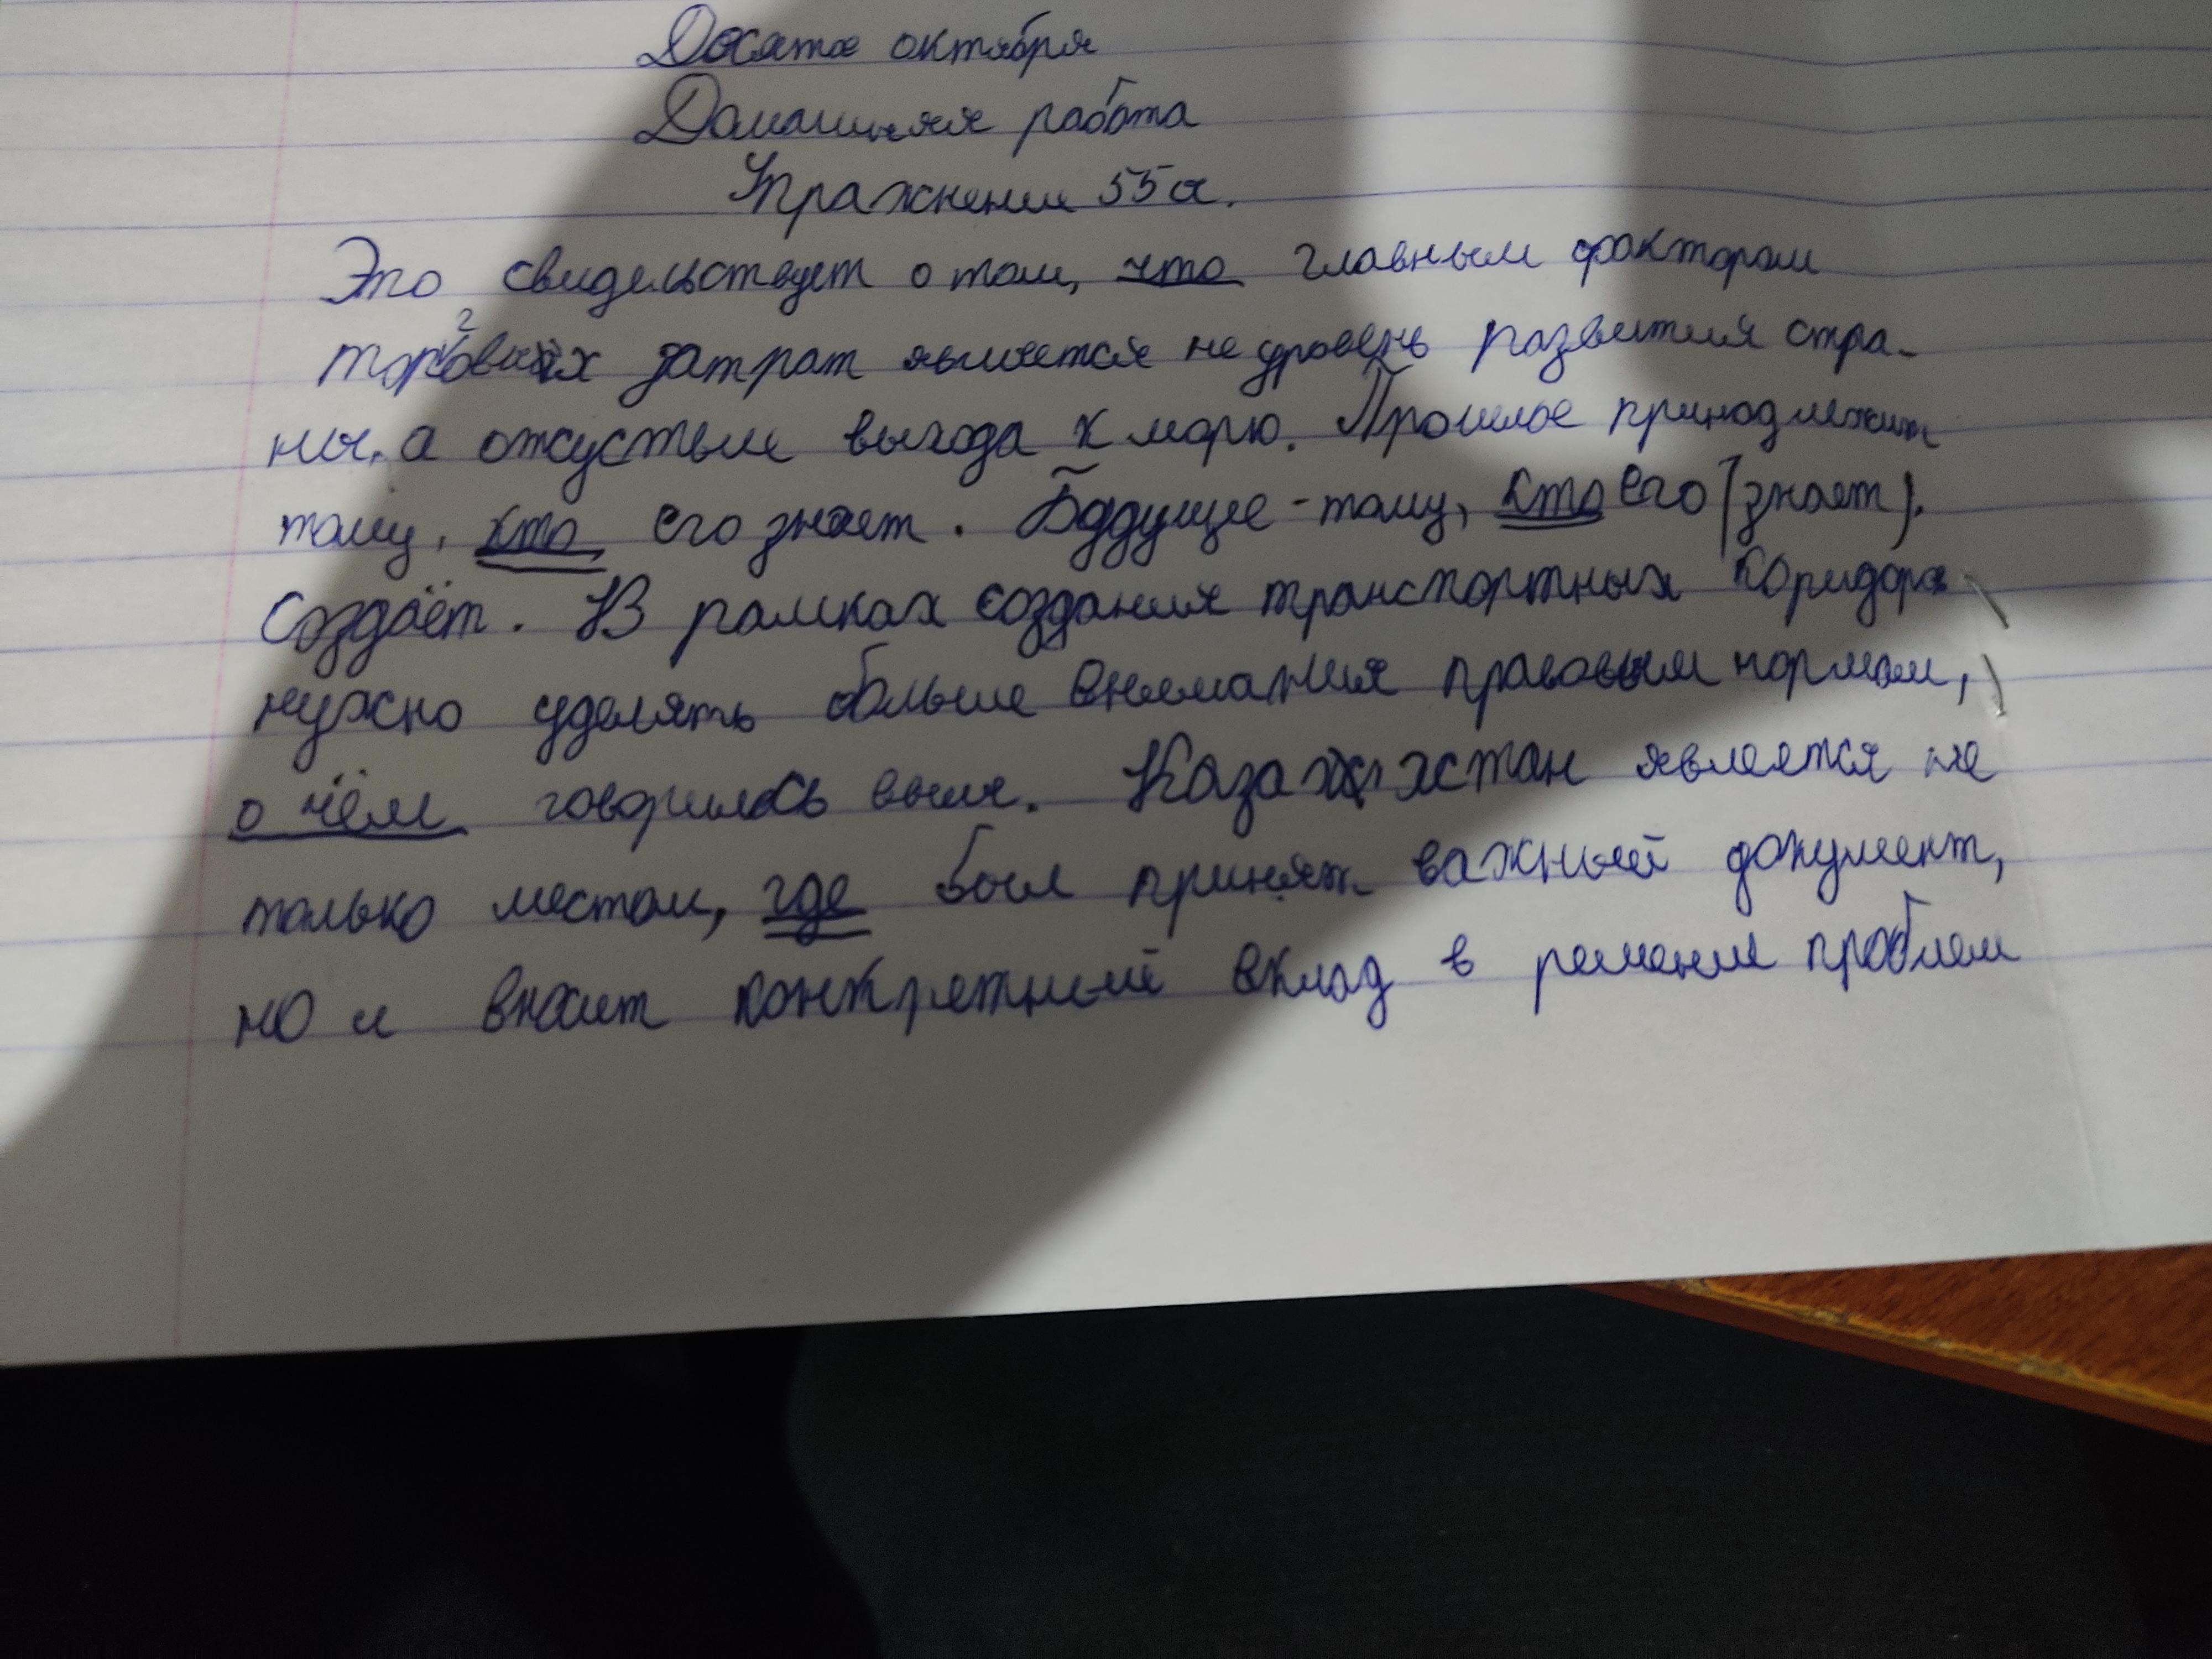 Десятое октября
Домашняя работа
Упражнение 55а.
Это свидельствует о том, что главным фактором
торговых затрат является не уровень развития стра-
ны, а отсуствие выхода к морю. Прошлое принадлежит
тому, кто его знает. Будущее - тому, кто его (знает).
создаёт. В рамках создания транспортных коридора
нужно уделять больше внимания правовым нормам,
о чём говорилось выше. Казахстан является не
только местом, где был принят важный документ,
но и вносит конкретный вклад в решение проблем